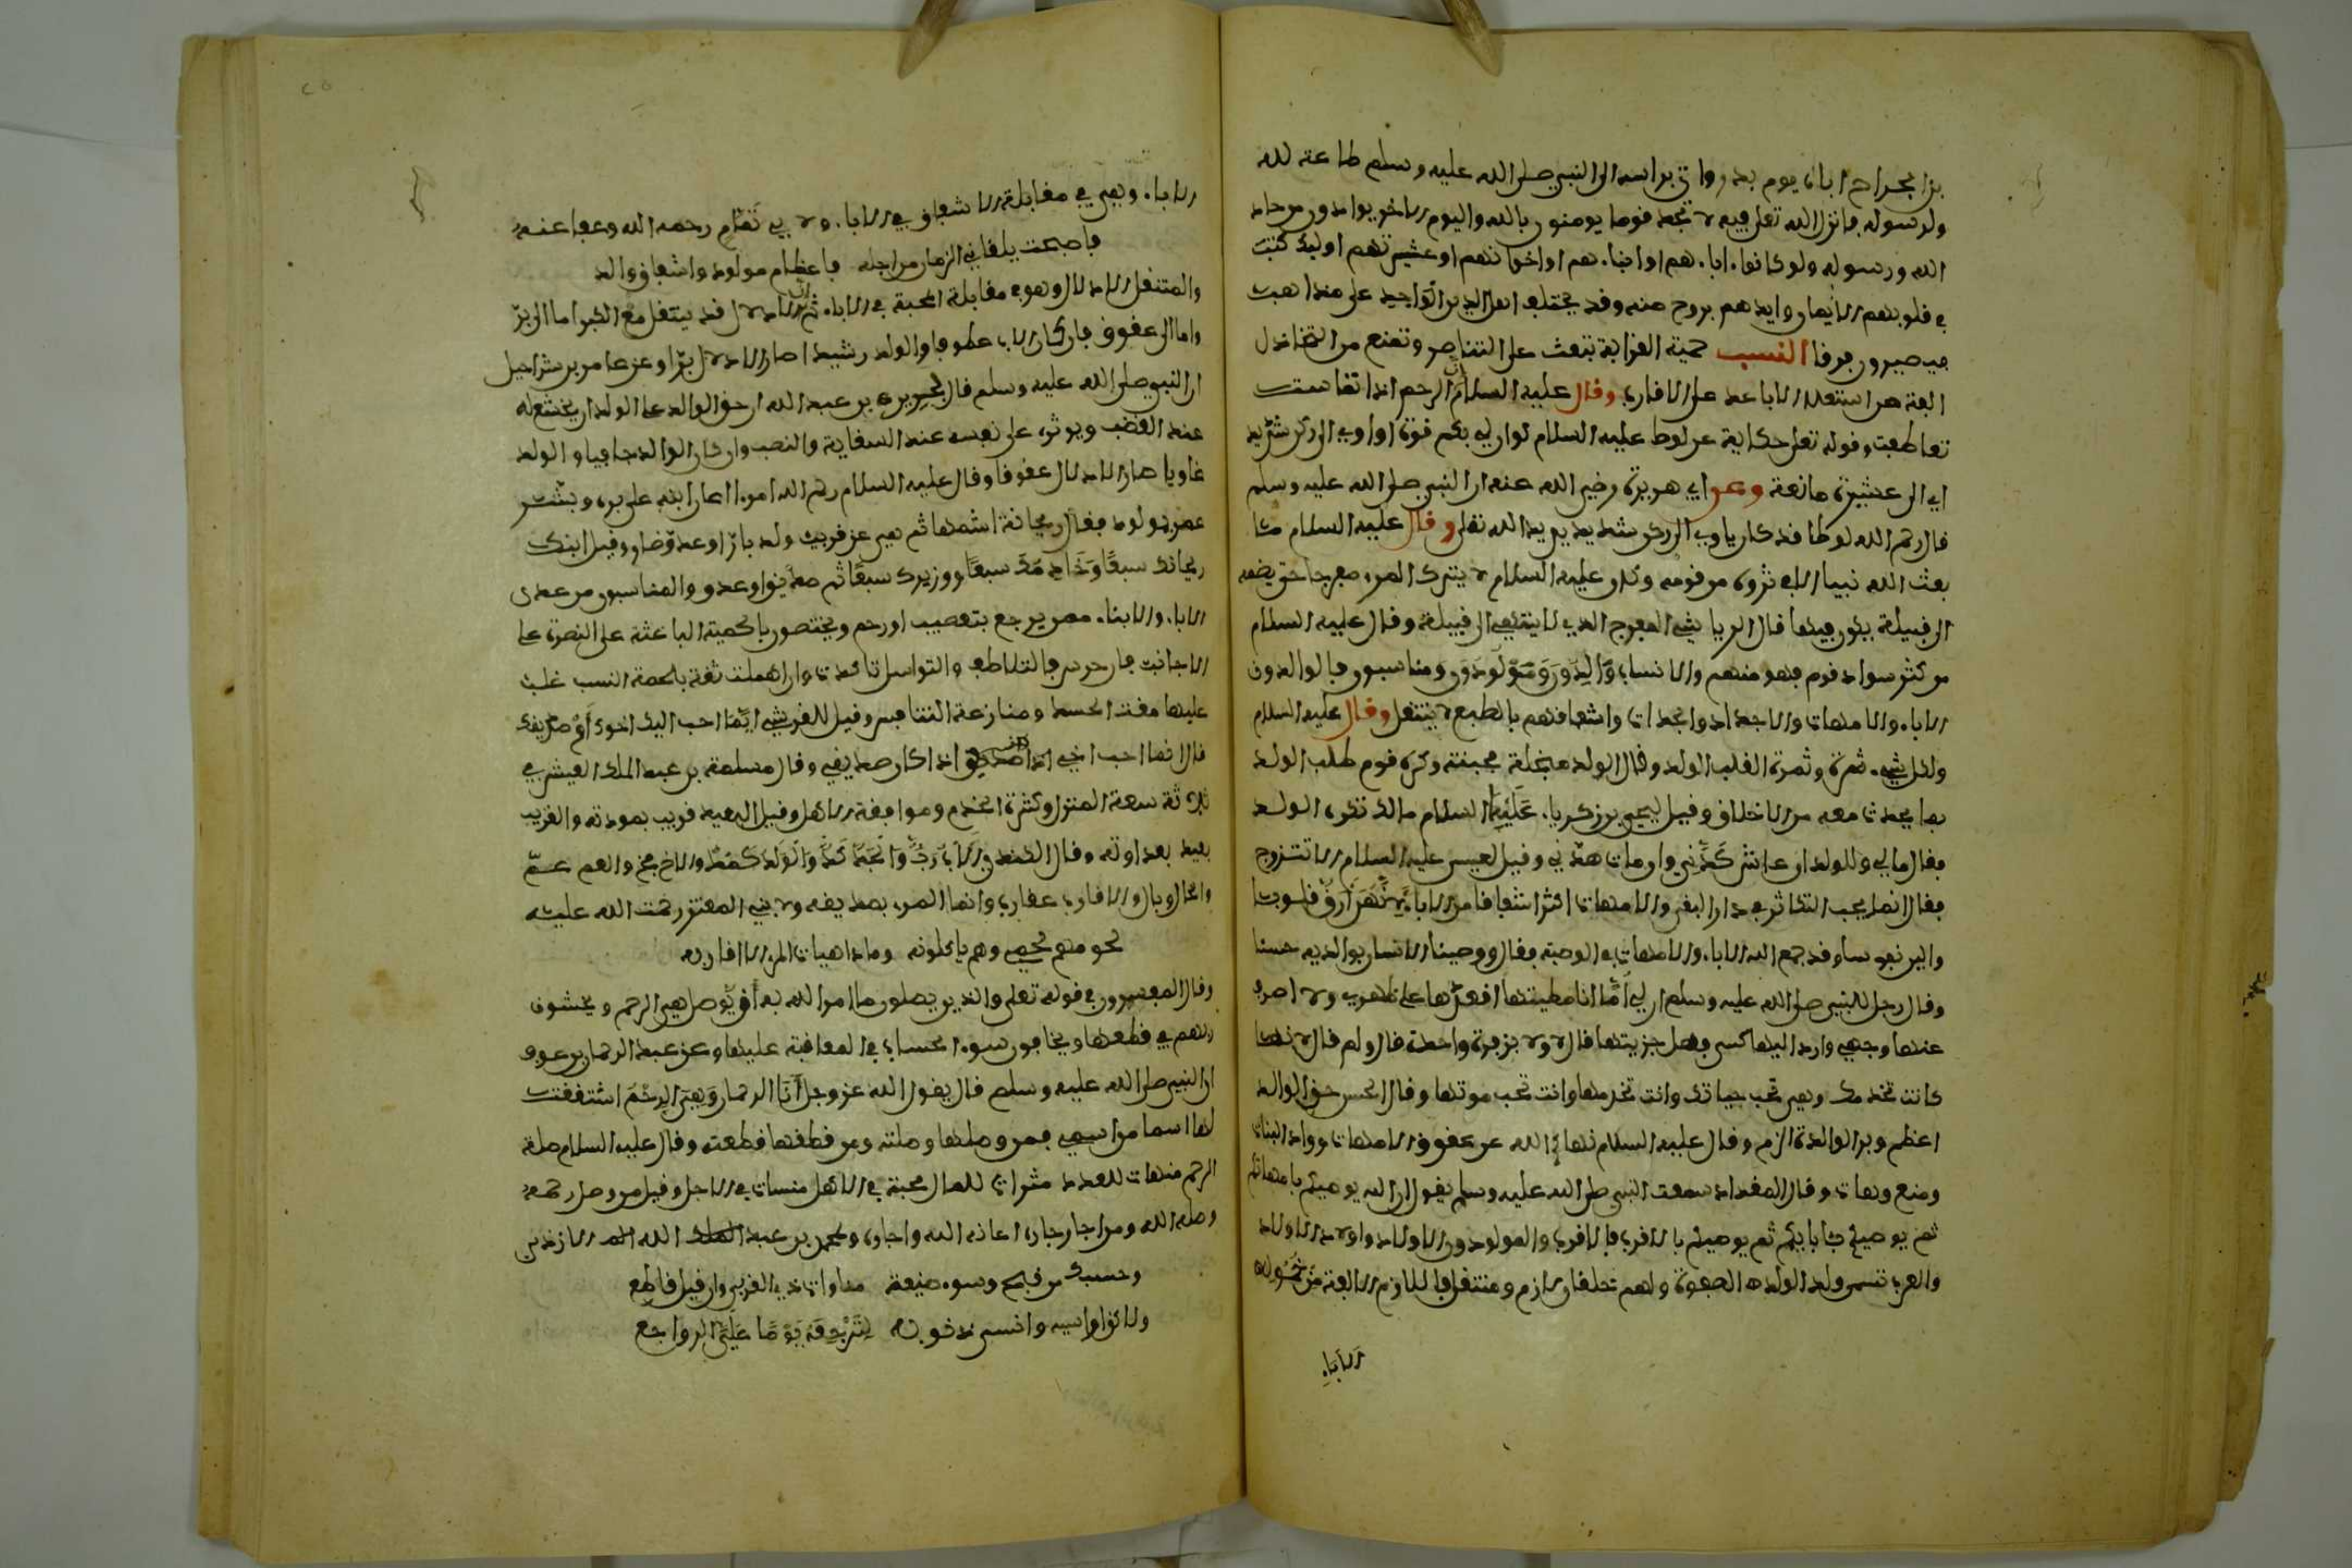 بن الجراح اباه يوم بدر واتى براسه الى النبي صلى الله عليه وسلم طاعة لله
ولرسوله فانزل الله تعلى فيه لا تجد قوما يومنون بالله واليوم الاخر يوادون من حاد
الله ورسوله ولو كانوا ءاباءهم او ابناءهم او اخوانهم او عشيرتهم اوليك كتب
في قلوبهم الايمان وايدهم بروح منه وقد يختلف اهل الدين الواحد على مذاهب
فيصيرون فرقا النسب حمية القرابة تبعث على التناصر وتمنع من التخاذل
انفة من استعلاء الاباعد على الاقارب وقال عليه السلام ان الرحم اذا تماست
تعاطفت وقوله تعلى حكاية عن لوط عليه السلام لو ان لي بكم قوة او اوي الى ركن شديد
اي الى عشيرة مانعة وعن ابي هريرة رضي الله عنه ان النبي صلى الله عليه وسلم
قال رحم الله لوطا قد كان ياوي الى ركن شديد يريد الله تعلى وقال عليه السلام ما
بعث الله نبيا الا في ثروة من قومه وكان عليه السلام لا يترك المرء مفرجا حتى يضمه
الى قبيلة يكون فيها قال الرياشي المفرج الذي لا ينتمي الى قبيلة وقال عليه السلام
من كثر سواد قوم فهو منهم والانساب والدون ومولودون ومناسبون فالوالدون
الاباء والامهات والاجداد والجدات واشفاقهم بالطبع لا ينتقل وقال عليه السلام
ولكل شيء ثمرة وثمرة القلب الولد وقال الولد مبخلة مجبنة وكره قوم طلب الولد
بما يحدث معه من الاخلاق وقيل ليحيى بن زكرياء عليهما السلام مالك تكره الولد
فقال مالي وللولد ان عاش كدني وان مات هدني وقيل لعيسى عليه السلام الا تتزوج
فقال انما يجب التكاثر في دار البقى والامهات اكثر اشفاقا من الاباء لانهن ارق قلوبا
والين نفوسا وقد جمع الله الاباء والامهات في الوصية فقال ووصينا الانسان بوالديه حسنا
وقال رجل للنبي صلى الله عليه وسلم ان لي اما انا مطيتها اقعدها على ظهري ولا اصرف
عنها وجهي وارد اليها كسبي فهل جزيتها قال لا ولا بزفرة واحدة قال ولم قال لانها
كانت تخدمك وهي تحب حياتك وانت تخدمها وانت تحب موتها وقال الحسن حق الوالد
اعظم وبر الوالدة الزم وقال عليه السلام نهاكم الله عن عقوق الامهات وواد البنات
ومنع وهات وقال المقداد سمعت النبي صلى الله عليه وسلم يقول ان الله يوصيكم بامهاتكم
ثم يوصيكم بابايكم ثم يوصيكم بالاقرب فالاقرب والمولودون الاولاد واولاد الاولاد
والعرب تسمى ولد الولد الصفوة ولهم خلقان لازم ومنتقل فاللازم الانفة
الاباء
الاباء وهي في مقابلة الاشفاق في الاباء ولابي تمام رحمه الله وعفا عنه
فاصبحت يلقاني الزمان من اجله باعظام مولود واشفاق والد
والمتنقل الادلال وهو في مقابلة المحبة في الاباء ثم ان الادلال قد ينتقل مع الكبر اما الى بر
واما الى عقوق فان كان الاب عطوفا والولد رشيدا صار الادلال برا وعن عامر بن شراحيل
ان النبي صلى الله عليه وسلم قال لجرير بن عبد الله ان حق الوالد على الولد ان يخشع له
عند الغضب ويوثره على نفسه عند السغاية والنصب وان كان الوالد جافيا والولد
غاويا صار الادلال عقوقا وقال عليه السلام رحم الله امرءا اعان ابنه على بره وبشر
عمر بمولود فقال ريحانة اشمها ثم هي عن قريب ولد بار او عدو ضار وقيل ابنك
ريحانك سبعا وخادمك سبعا ووزيرك سبعا ثم صديق او عدو والمناسبون من عدى
الاباء والابناء ممن يرجع بتعصيب او رحم ويختصون بالحمية الباعثة على النصرة على
الاجانب فان حرس بالتلاطف والتواصل تاكدت وان اهملت ثقة بلحمة النسب غلب
عليها مقت الحسد ومنازعة التنافس وقيل للقرشي ايما احب اليك اخوك ام صديقك
قال انما احب اخي اذا كان صديقي وقال مسلمة بن عبد الملك العيش في
ثلاثة سعة المنزل وكثرة الخدم وموافقة الاهل وقيل البعيد قريب بمودته والقريب
بعيد بعداوته وقال الكندي الاب رب والجد كد والولد كمد والاخ فخ والعم غم
والخال وبال والاقارب عقارب وانما المرء بصديقه ولابن المعتز رحمت الله عليه
لحومهم لحمي وهم ياكلونه وما داهيات المرء الا اقاربه
وقال المفسرون في قوله تعلى والذين يصلون ما امر الله به ان يوصل هي الرحم ويخشون
ربهم في قطعها ويخافون سوء الحساب في المعاقبة عليها وعن عبد الرحمان بن عوف
ان النبي صلى الله عليه وسلم قال يقول الله عز وجل انا الرحمان وهي الرحم اشتققت
لها اسما من اسمي فمن وصلها وصلته ومن قطعها قطعته وقال عليه السلام صلة
الرحم منماة للعدد مثراة للمال محبة في الاهل منساة في الاجل وقيل من وصل رحمه
وصله الله ومن اجار جاره اعانه الله واجاره ولمحمد بن عبد الله الازدي
وحسبك من قبح وسوء صنيعة مناوات ذي القربى وان قيل قاطع
ولاكن اواسيه وانسى ذنوبه لترجعه يوما علي الرواجع